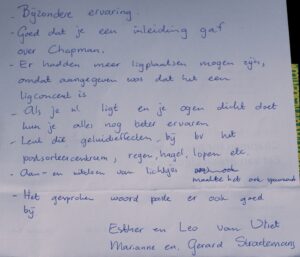 - Bijzondere ervaring.
- Goed dat je een inleiding gaf
over Chapman.
- Er hadden meer ligplaatsen mogen zijn,
omdat aangegeven was dat het een
ligconcert is
- Als je nl ligt en je ogen dicht doet
kun je alles nog beter ervaren
- Leuk die geluidseffecten, bij bv het
postsorteercentrum, regen, hagel, lopen etc.
- Aan- en uitdoen van lichtjes
maakte het ook spannend
- Het gesproken woord paste er ook goed
bij
Esther en Leo van Vliet
Marianne en Gerard